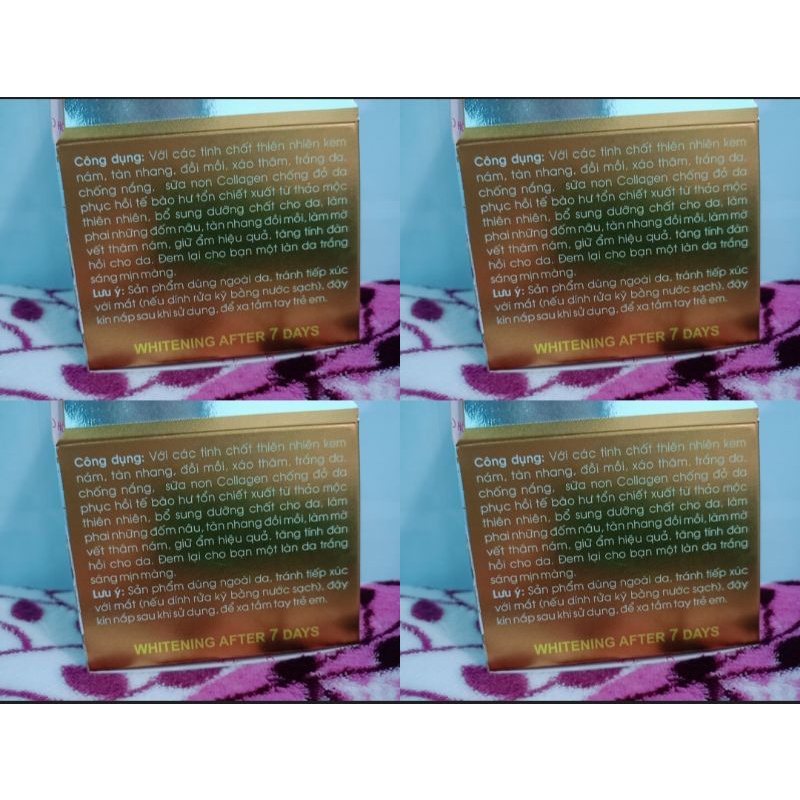 Công dụng: Với các tinh chất thiên nhiên kem
nám, tàn nhang, đồi mồi, xáo thâm, trắng da,
chống nắng, sữa non Collagen chống đỏ da
phục hồi tế bào hư tổn chiết xuất từ thảo mộc
thiên nhiên, bổ sung dưỡng chất cho da, làm
phai những đốm nâu, tàn nhang đồi mồi, làm mờ
vết thâm nám, giữ ẩm hiệu quả, tăng tính đàn
hồi cho da. Đem lại cho bạn một làn da trắng
sáng mịn màng.
Lưu ý: Sản phẩm dùng ngoài da, tránh tiếp xúc
với mắt (nếu dính rửa kỹ bằng nước sạch), đậy
kín nắp sau khi sử dụng, để xa tầm tay trẻ em.
WHITENING AFTER 7 DAYS
Công dụng: Với các tinh chất thiên nhiên kem
nám, tàn nhang, đồi mồi, xáo thâm, trắng da,
chống nắng, sữa non Collagen chống đỏ da
phục hồi tế bào hư tổn chiết xuất từ thảo mộc
thiên nhiên, bổ sung dưỡng chất cho da, làm
phai những đốm nâu, tàn nhang đồi mồi, làm mờ
vết thâm nám, giữ ẩm hiệu quả, tăng tính đàn
hồi cho da. Đem lại cho bạn một làn da trắng
sáng mịn màng.
Lưu ý: Sản phẩm dùng ngoài da, tránh tiếp xúc
với mắt (nếu dính rửa kỹ bằng nước sạch), đậy
kín nắp sau khi sử dụng, để xa tầm tay trẻ em.
WHITENING AFTER 7 DAYS
Công dụng: Với các tinh chất thiên nhiên kem
nám, tàn nhang, đồi mồi, xáo thâm, trắng da,
chống nắng, sữa non Collagen chống đỏ da
phục hồi tế bào hư tổn chiết xuất từ thảo mộc
thiên nhiên, bổ sung dưỡng chất cho da, làm
phai những đốm nâu, tàn nhang đồi mồi, làm mờ
vết thâm nám, giữ ẩm hiệu quả, tăng tính đàn
hồi cho da. Đem lại cho bạn một làn da trắng
sáng mịn màng.
Lưu ý: Sản phẩm dùng ngoài da, tránh tiếp xúc
với mắt (nếu dính rửa kỹ bằng nước sạch), đậy
kín nắp sau khi sử dụng, để xa tầm tay trẻ em.
WHITENING AFTER 7 DAYS
Công dụng: Với các tinh chất thiên nhiên kem
nám, tàn nhang, đồi mồi, xáo thâm, trắng da,
chống nắng, sữa non Collagen chống đỏ da
phục hồi tế bào hư tổn chiết xuất từ thảo mộc
thiên nhiên, bổ sung dưỡng chất cho da, làm
phai những đốm nâu, tàn nhang đồi mồi, làm mờ
vết thâm nám, giữ ẩm hiệu quả, tăng tính đàn
hồi cho da. Đem lại cho bạn một làn da trắng
sáng mịn màng.
Lưu ý: Sản phẩm dùng ngoài da, tránh tiếp xúc
với mắt (nếu dính rửa kỹ bằng nước sạch), đậy
kín nắp sau khi sử dụng, để xa tầm tay trẻ em.
WHITENING AFTER 7 DAYS